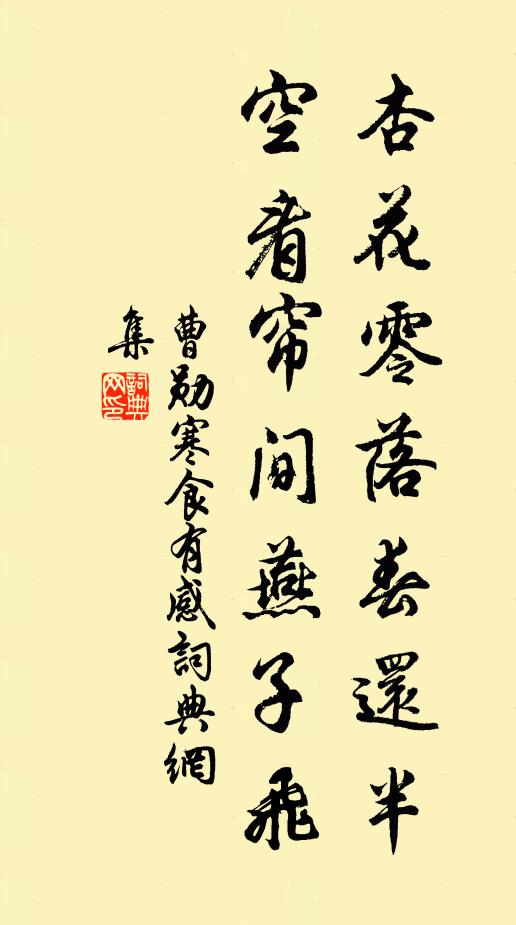 杏花零落春還半
空看帘間燕子飛
曹勛寒食有感詞典網
集
詞典
网印